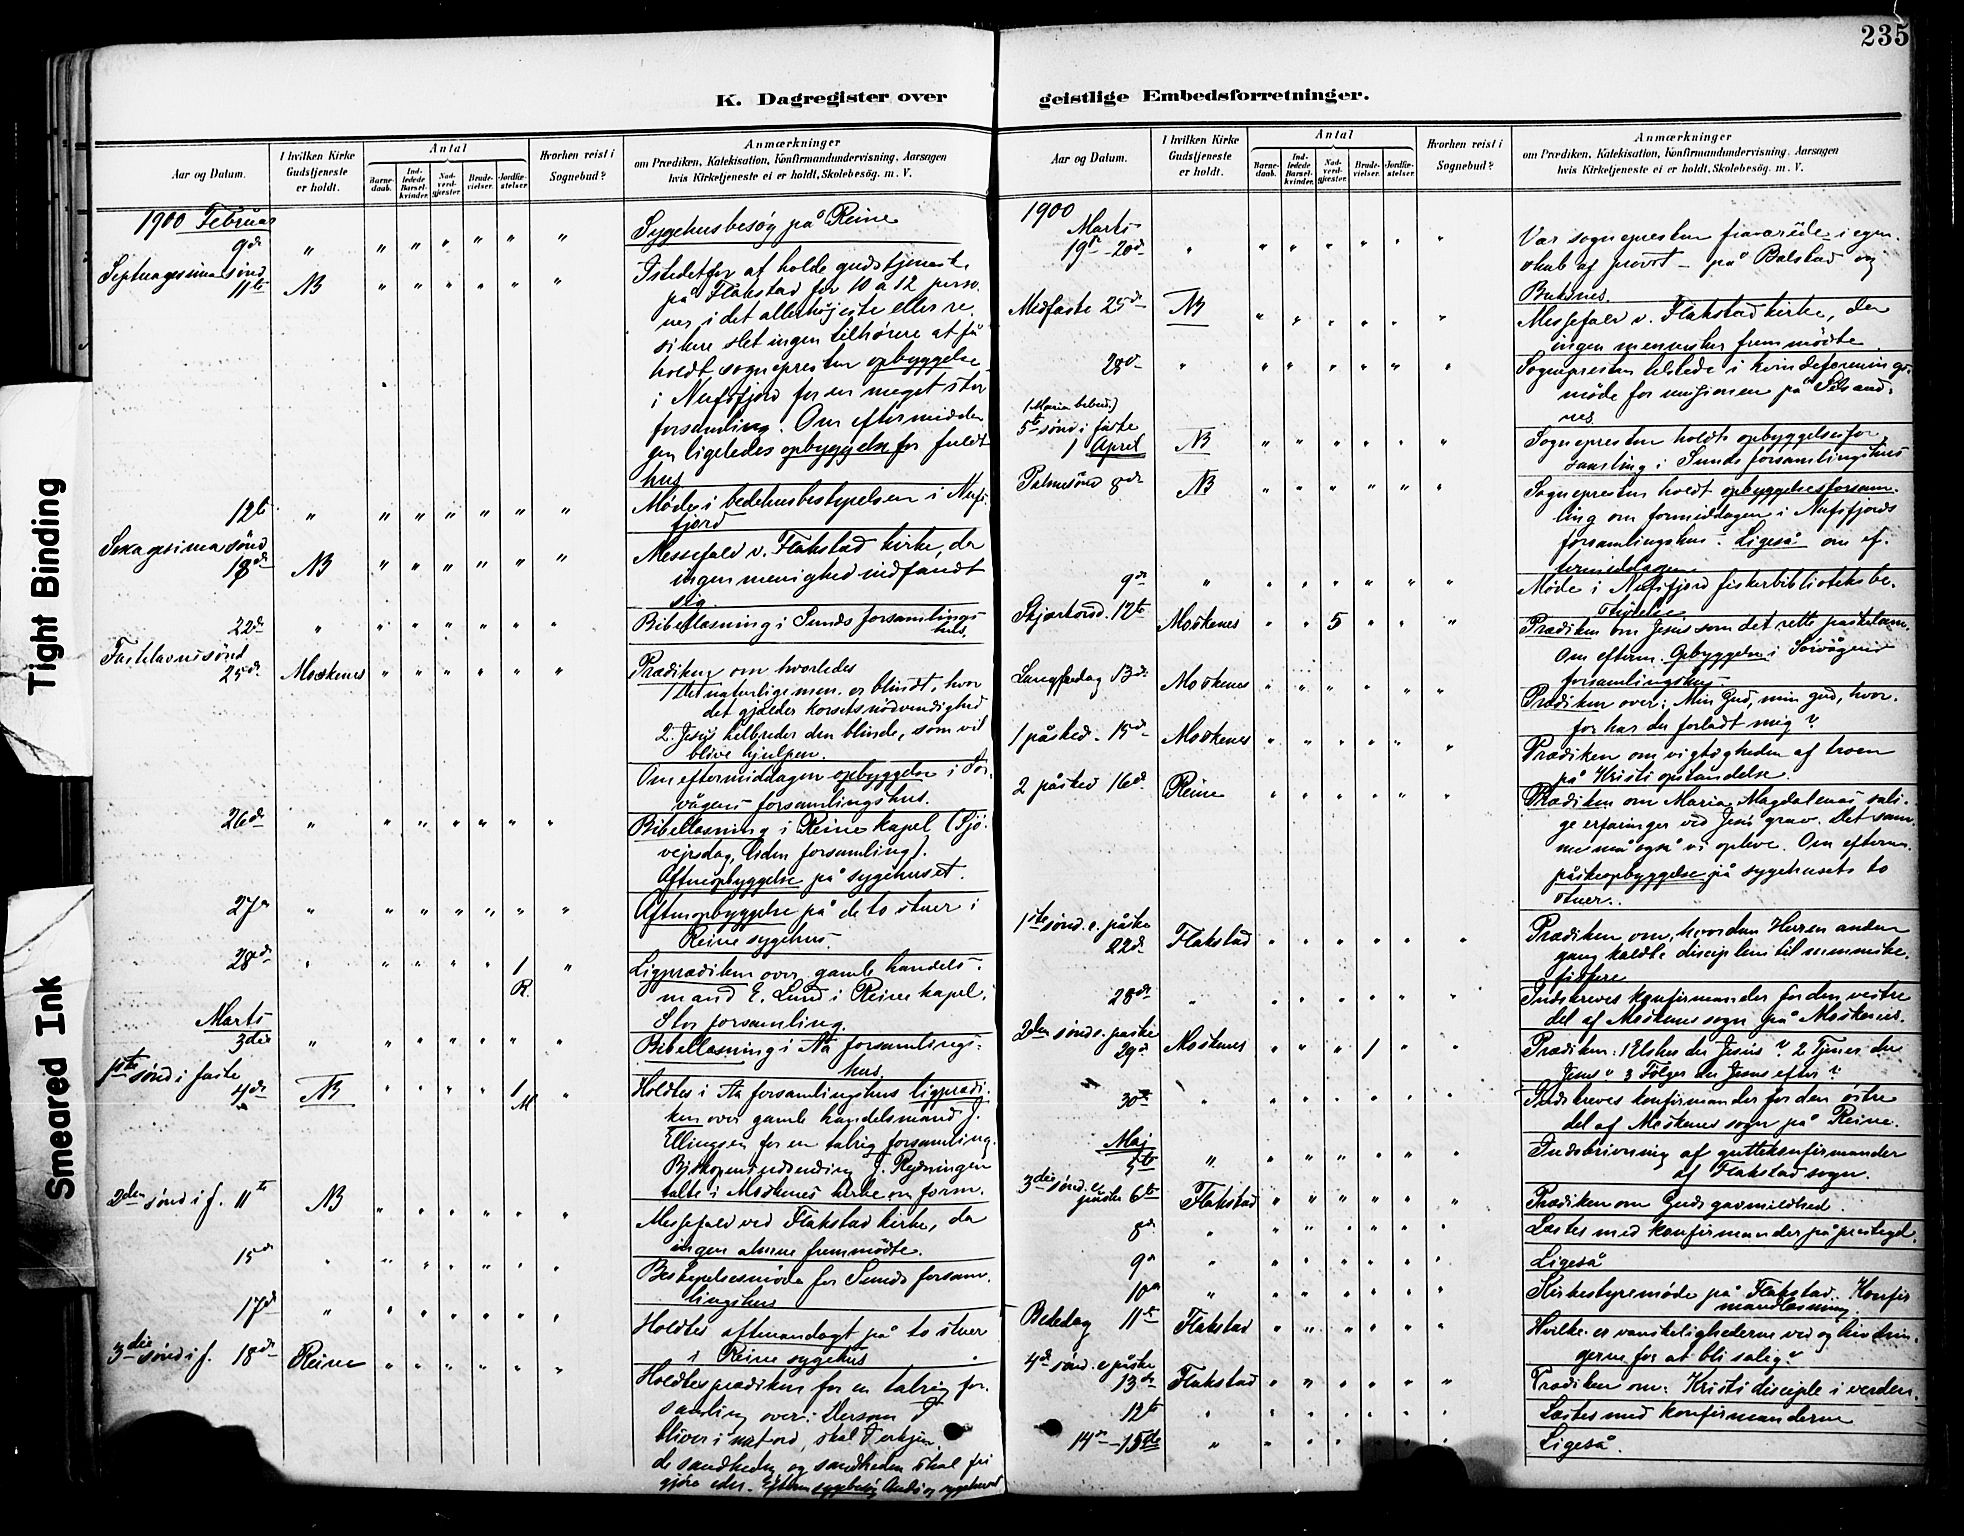 235
K. Dagregister over
geistlige Embedsforretninger.
Aar og Datum.
I hvilken Kirke Gudstjeneste er holdt.
Antal
Barnedaab.
Indledede Barselkvinder.
Nadverdgjæster.
Brudevielser.
Jordfæstelser.
Hvorhen reist i Sognebud?
Anmærkninger
om Prædiken, Katekisation, Konfirmandundervisning, Aarsagen
hvis Kirketjeneste ei er holdt, Skolebesøg. m. V.
Tight Binding
Smeared Ink
1900 Februar
9de
Sygehusbesøg på Reine
Septuagesima sønd.
11te NB
Istedetfor at holde gudstjeneste
på Flakstad for 10 a 12 perso-
ner i det allerhøjeste eller re-
sikere slet ingen tilhørere at få
holdt sognepresten opbyggelse
i Nufsfjord for en meget stor
forsamling. Om eftermidda-
gen ligeledes opbyggelse for fuldt
hus
12te
Møde i bedehusbestyrelsen i Nufs-
fjord
Sexagesima sønd
18de NB
Messefald v. Flakstad kirke, da
ingen menighed indfandt
sig.
22de
Bibellæsning i Sunds forsamlings-
hus.
Fastelavnssønd
25de Moskenes
Prædiken om hvorledes
1 Det naturlige men. er blindt, hvor
det gjælder korsets nødvendighed
2. Jesus helbreder den blinde, som vil
blive hjulpen.
Om eftermiddagen opbyggelse i Sør-
vågens forsamlingshus.
26de
Bibellæsning i Reine kapel (Sjø-
vejrsdag, liden forsamling).
Aftenopbyggelse på sygehuset.
27de
Aftenopbyggelse på de to stuer i
Reine sygehus.
28de 1 R.
Ligprædiken over gamle handels-
mand E. Lund i Reine kapel.
Stor forsamling.
Marts
3die
Bibellæsning i Aa forsamlings-
hus.
1ste sønd i faste
4de NB 1 M
Holdtes i Aa forsamlingshus ligprædi-
ken over gamle handelsmand J.
Ellingsen for en talrig forsamling.
talte i Moskenes kirke om form.
2den sønd i f. 11te NB
Messefald ved Flakstad kirke, da
ingen alene fremmødte.
15de
Bestyrelsesmøde for Sunds forsam-
lingshus
17de
Holdtes aftenandagt på to stuer
i Reine sygehus
3die sønd i f. 18de Reine
Holdtes prædiken for en talrig for-
samling over: Dersom I
bliver i mit ord, skal I erkjen-
de sandheden og sandheden skal fri-
gjøre eder.
1900
Marts
19de - 20de
Var sognepresten fraværende i egen-
skab af provst - på Balstad og
Buksnes.
Midfaste 25de NB
Messefald v. Flakstad kirke, da
ingen mennesker fremmødte
28de
Sognepresten tilstede i kvindeforenings-
møde for missionen på
nes.
(Maria bebud.)
5te sønd i faste
1 April NB
Sognepresten holdt opbyggelsesfor-
samling i Sunds forsamlingshus
Palmesønd 8de NB
Sognepresten holdt opbyggelsesforsam-
ling om formiddagen i Nufsfjords
forsamlingshus. Ligeså om ef-
termiddagen
9de
Møde i Nufsfjord fiskerbiblioteksbe-
styrelse
Skjærtorsd. 12te Moskenes 5
Prædiken om Jesus som det rette påskelam.
Om efterm. Opbyggelse i Sørvågens
forsamlingshus
Langfredag 13de Moskenes
Prædiken over: Min Gud, min gud, hvor-
for har du forladt mig?
1 påsked. 15de Moskenes
Prædiken om vigtigheden af troen
på Kristi opstandelse.
2 påsked 16de Reine
Prædiken om Maria Magdalenas sali-
ge erfaringer ved Jesu grav. Det sam-
me må også vi opleve. Om efterm.
påskeopbyggelse på sygehusets to
stuer.
1ste sønd. e. påske
22de Flakstad
Prædiken om, hvordan Herren anden
gang kaldte disciplene til menneske-
fiskere
28de
Indskreves konfirmander for den vestre
del af Moskenes sogn på Moskenes.
2den sønd e. påske
29de Moskenes 1
Prædiken: 1 Elsker du Jesus? 2 Tjener du
Jesus? 3 Følger du Jesus efter?
30te
Indskreves konfirmander for den østre
del af Moskenes sogn på Reine.
Maj
5te
Indskrivning af guttekonfirmander
af Flakstad sogn.
3die sønd. e.
påske 6te Flakstad
Prædiken om Guds gavmildhed.
8de
Læstes med konfirmander på prestegd.
9de
Ligeså
10de
Kirkestyremøde på Flakstad. Konfir
mandlæsning
Bededag 11te Flakstad
Hvilke er vanskelighederne ved og hindrin-
gerne for at bli salig?
4de sønd. e påske
13de Flakstad
Prædiken om: Kristi disciple i verden.
12te
Læstes med konfirmanderne
14de - 15de
Ligeså.